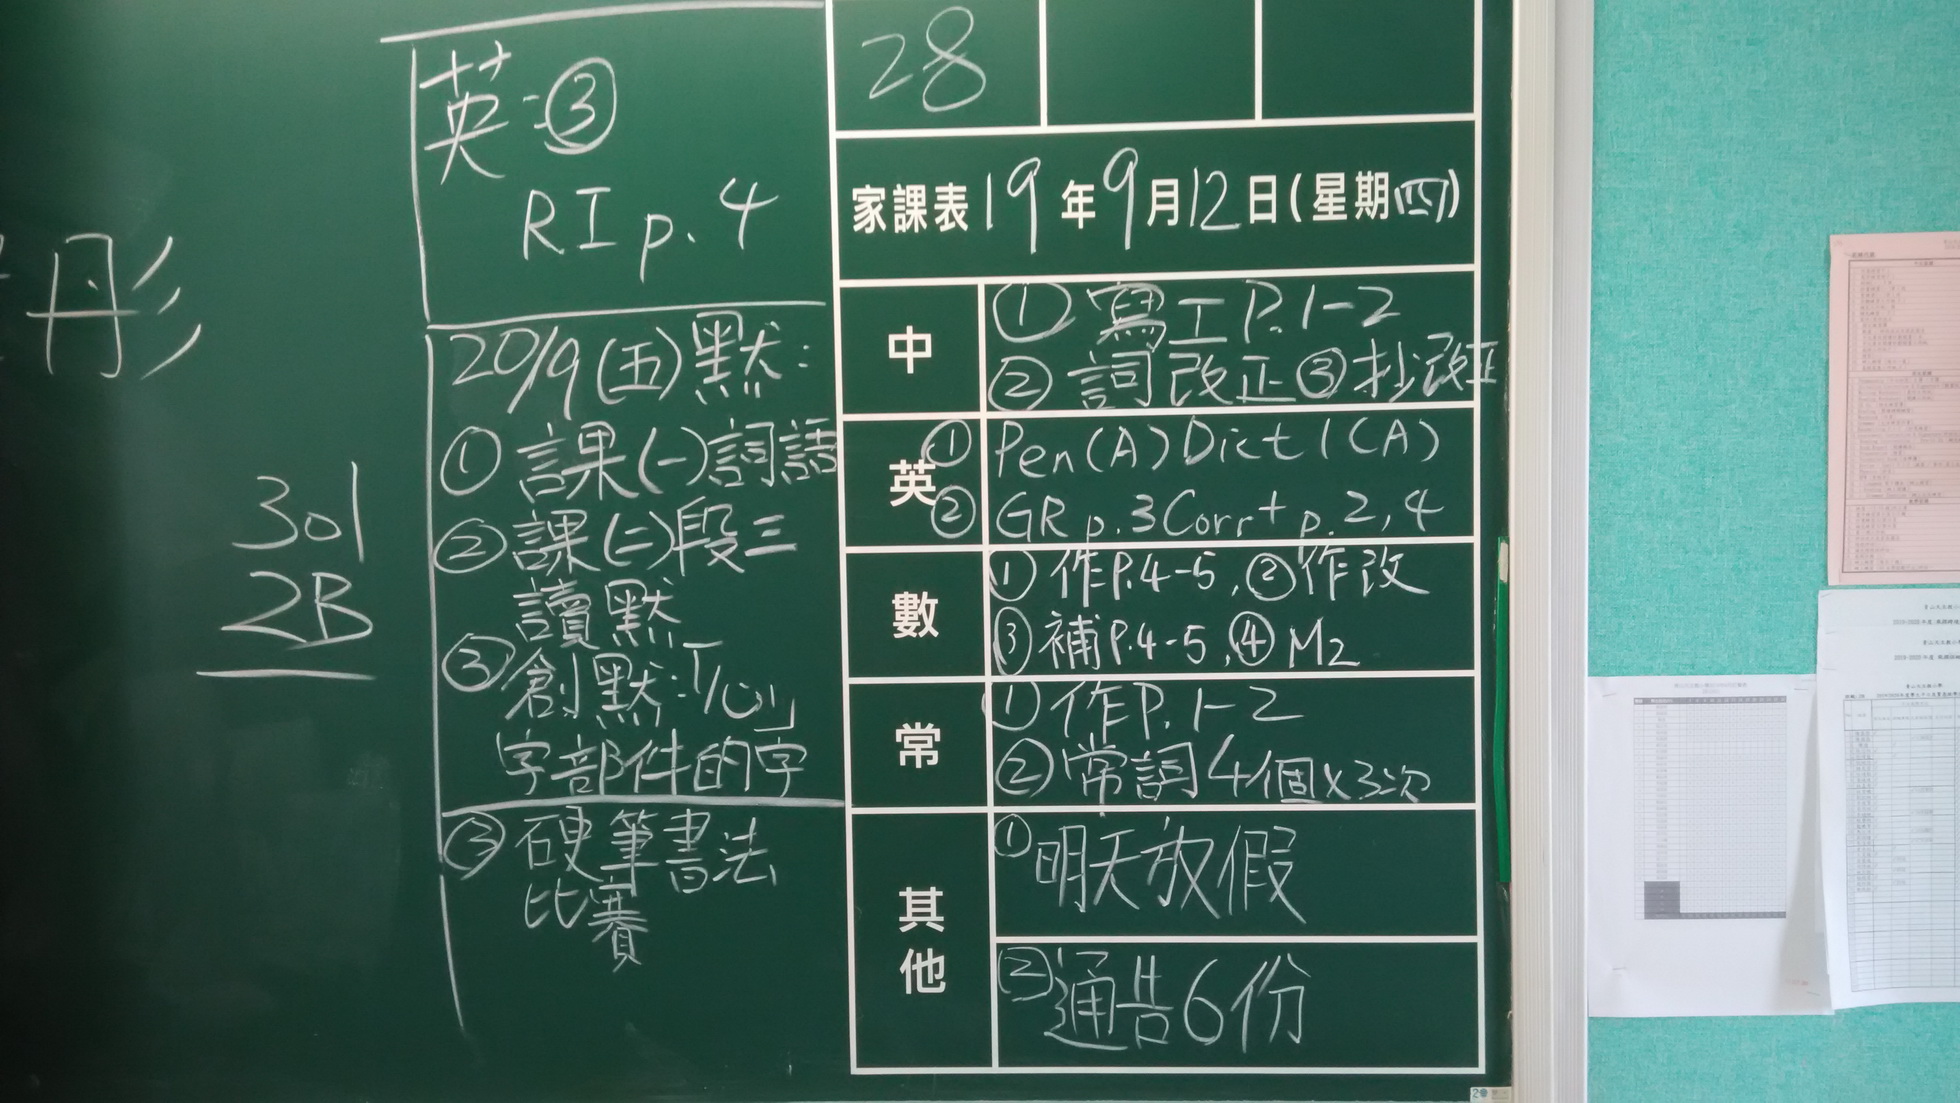 彤
301
2B
英:③
RI p.4
20/9(五)默:
①課(一)詞語
②課(二)段三
讀默
③創默:「/心」
字部件的字
③硬筆書法
比賽
28
家課表19年9月12日(星期四)
中
①寫工P.1-2
②詞改正③抄改正
英
①Pen(A)Dict 1(A)
②GR p.3Corr+p.2,4
數
①作P.4-5,②作改
③補P.4-5,④M2
常
①作P.1-2
②常詞4個x3次
其他
①明天放假
②通告6份